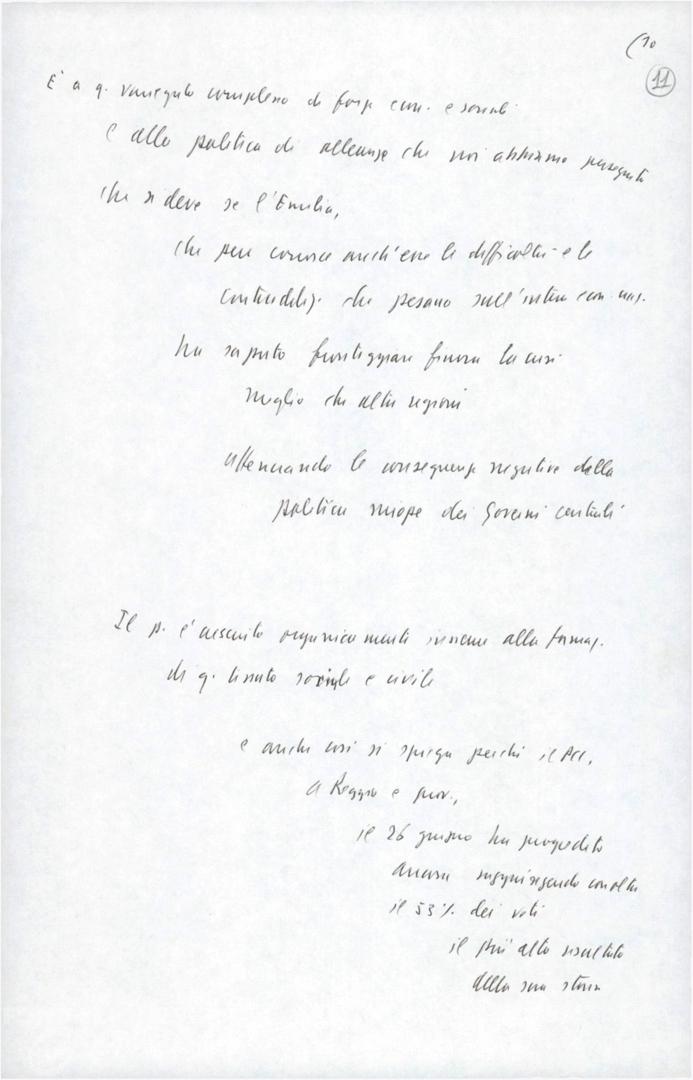 (10
11
E' a q. variegato complesso di forze econ. e sociali
e alla politica di alleanze che noi abbiamo perseguito
che si deve se l'Emilia,
che pure conosce anch'essa le difficoltà e le
contraddiz. che pesano sull'intera econ. naz.
ha saputo fronteggiare finora la crisi
meglio che altre regioni
attenuando le conseguenze negative della
politica miope dei Governi centrali
Il p. è cresciuto organicamente insieme alla formaz.
di q. tessuto sociale e civile
e anche così si spiega perché il PCI,
a Reggio e prov.,
il 26 giugno ha progredito
ancora raggiungendo
il 53% dei voti
il più alto risultato
della sua storia